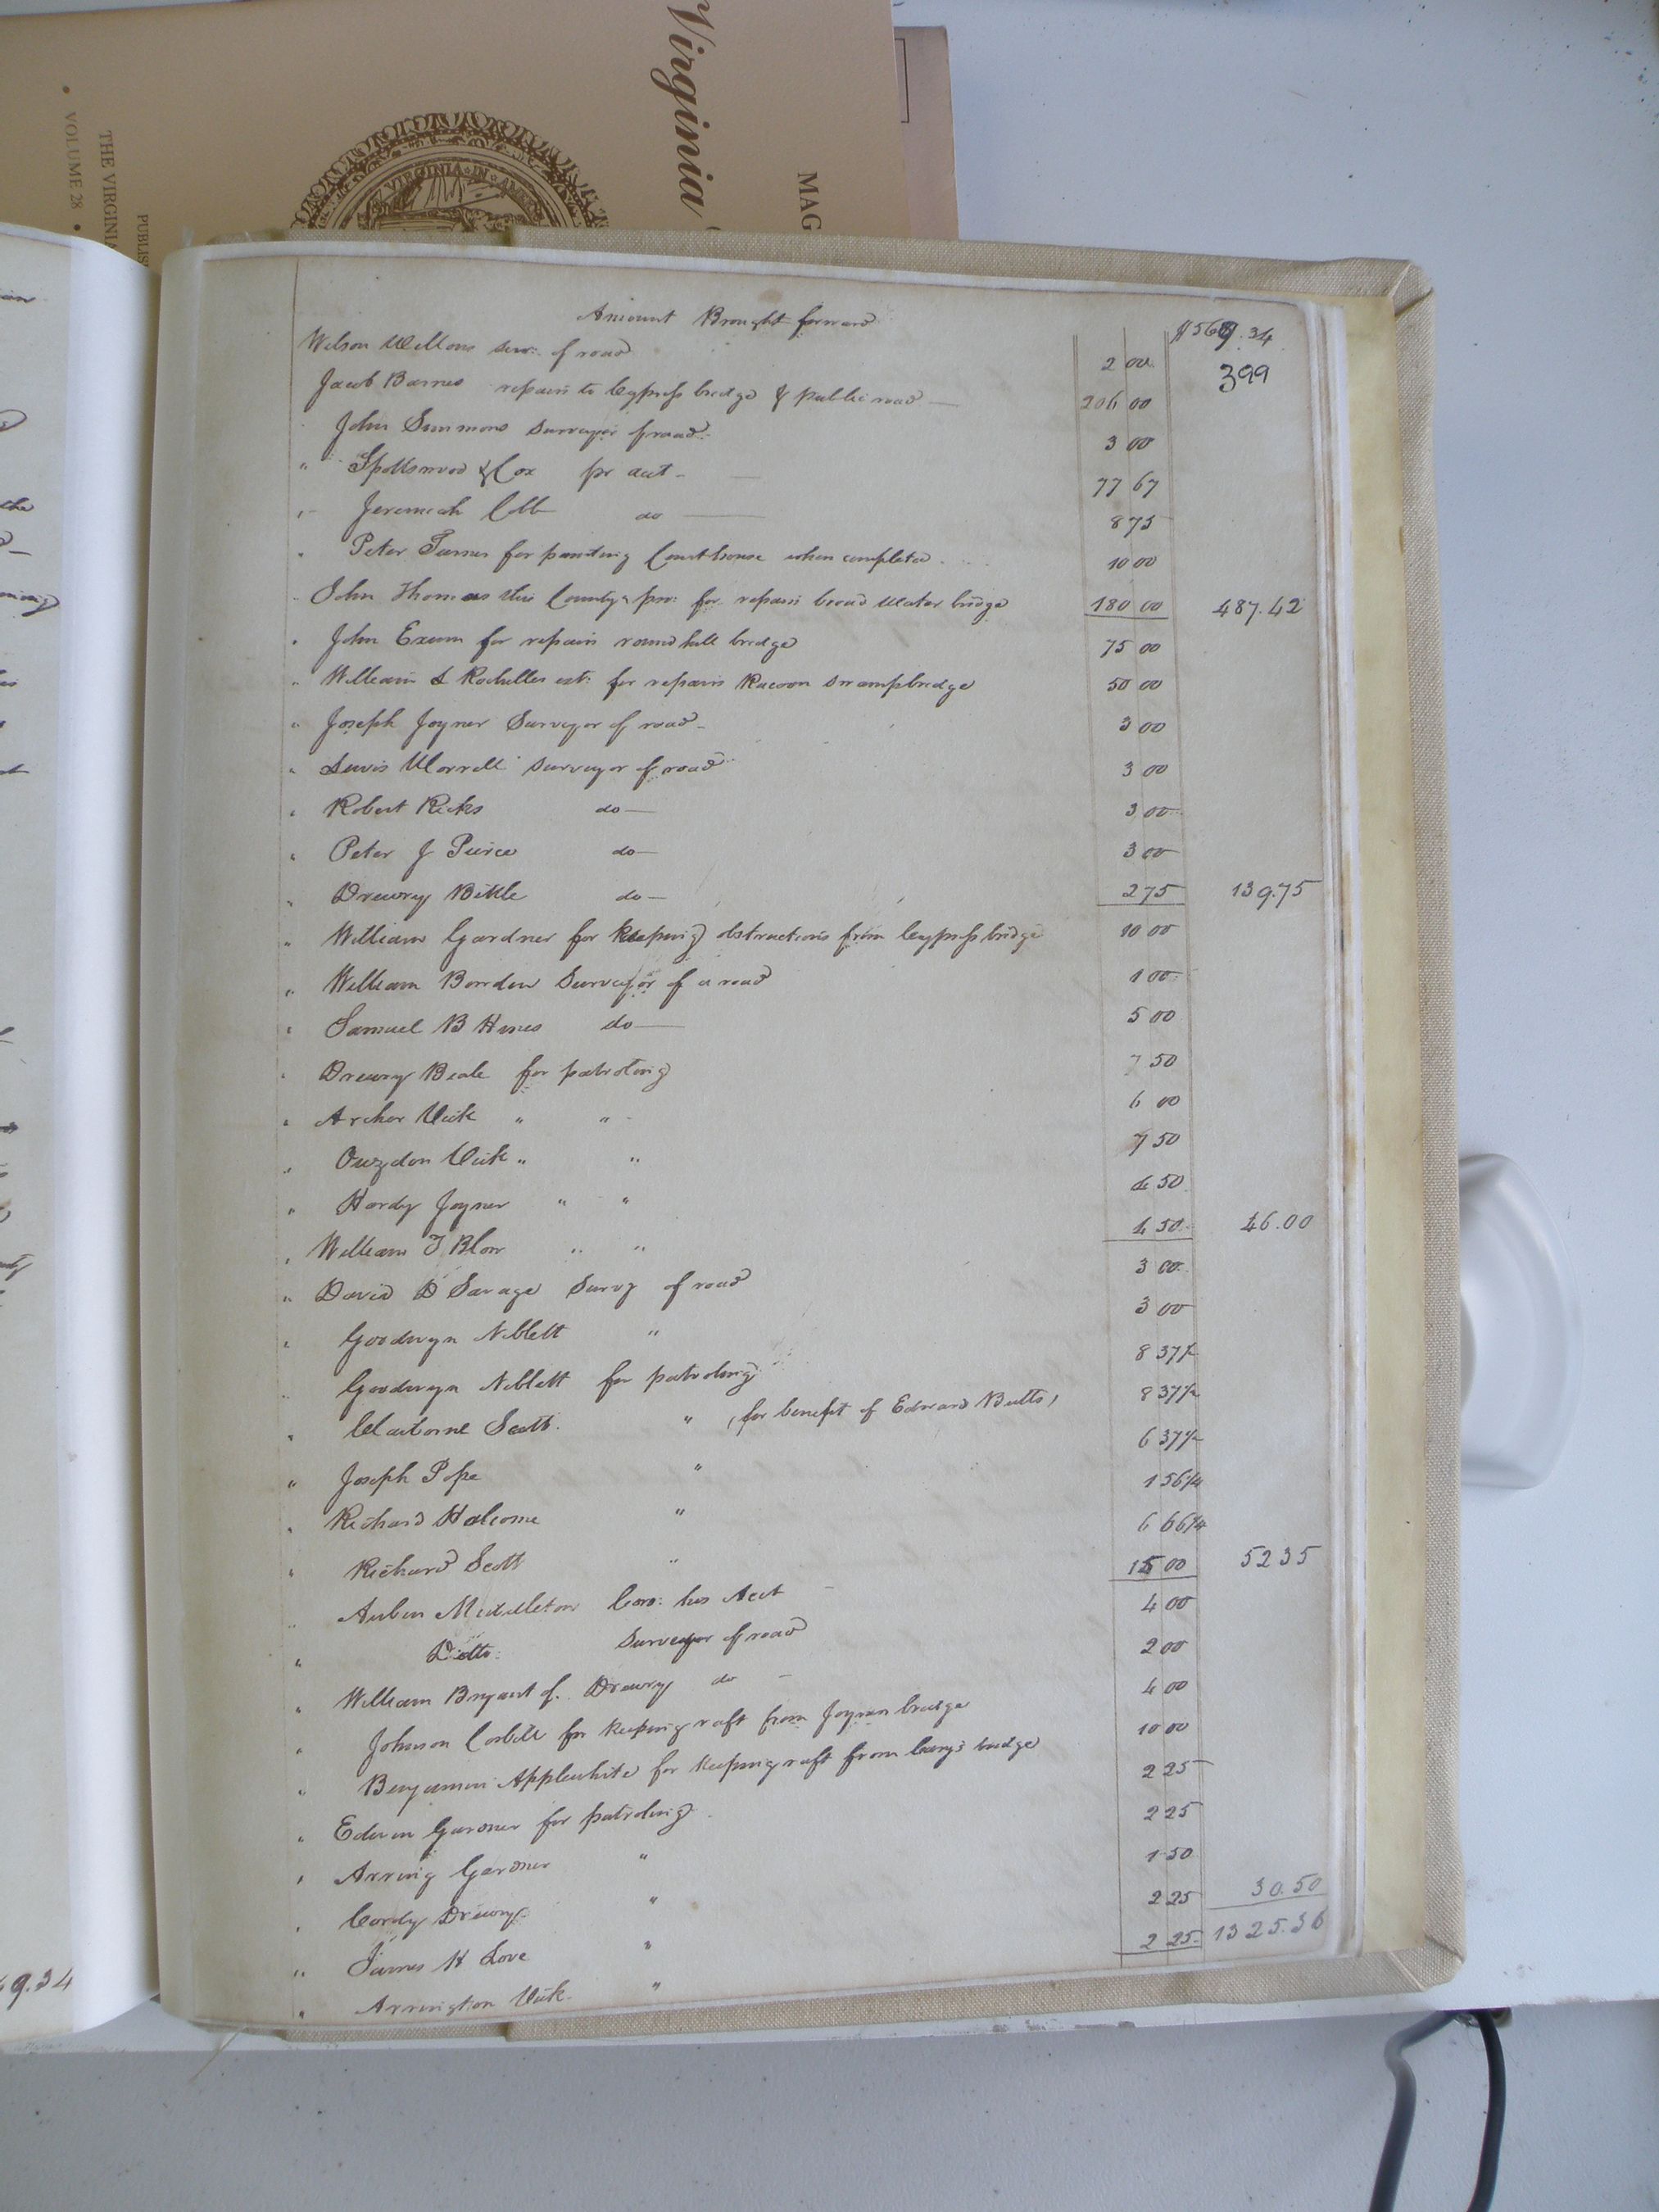 Virginia
MAG
VIRGINIA IN
PUBLIS
THE VIRGINIA
VOLUME 28
Amount Brought forward $569.34
399
Wilson Wellons Surr: of road 2 00
Jacob Barnes repairs to Cypress bridge & public road 206 00
John Simmons Surveyor of road 3 00
" Spottswood & Cox pr acct 77 67
" Jeremiah Cobb do 8 75
" Peter Turner for painting Courthouse when completed 10 00
" John Thomas this Countys pro: for repairs broad Water bridge 180 00 487.42
" John Exum for repairs round hill bridge 75 00
" William L Rochelles est: for repairs Racoon Swamp bridge 50 00
" Joseph Joyner Surveyor of road 3 00
" Lewis Worrell Surveyor of road 3 00
" Robert Ricks do 3 00
" Peter J Peirce do 3 00
" Drewry Bittle do 2 75 139.75
" William Gardner for keeping obstructions from Cypress bridge 10 00
" William Bowden Surveyor of a road 1 00
" Samuel B Hines do 5 00
" Drewry Beale for patroling 7 50
" Archer Vick " " 6 00
" Vick " " 7 50
" Hardy Joyner " " 4 50
" William T Blow " " 4 50 46.00
" David D Savage Survy of road 3 00
" Goodwyn Niblett " 3 00
" Goodwyn Niblett for patroling 8 37½
" Claiborne Scott " (for benefit of Edward Butts) 8 37½
" Joseph Pope " 6 37½
" Richard Holcome " 1 56¼
" Richard Scott " 6 66¼
" Middleton Coro: his Acct 15 00 52 35
" Ditto: Surveyor of road 4 00
" William Bryant of Drewry do 2 00
" Johnson Corbitt for keeping raft from Joyners bridge 4 00
" Benjamin Applewhite for keeping raft from Carys bridge 10 00
" Edwin Gardner for patroling 2 25
" Gardner " 2 25
" Drewry " 1 50
" James H Love " 2 25 30.50
" Arrington Vick " 2 25 1325.36
9.34